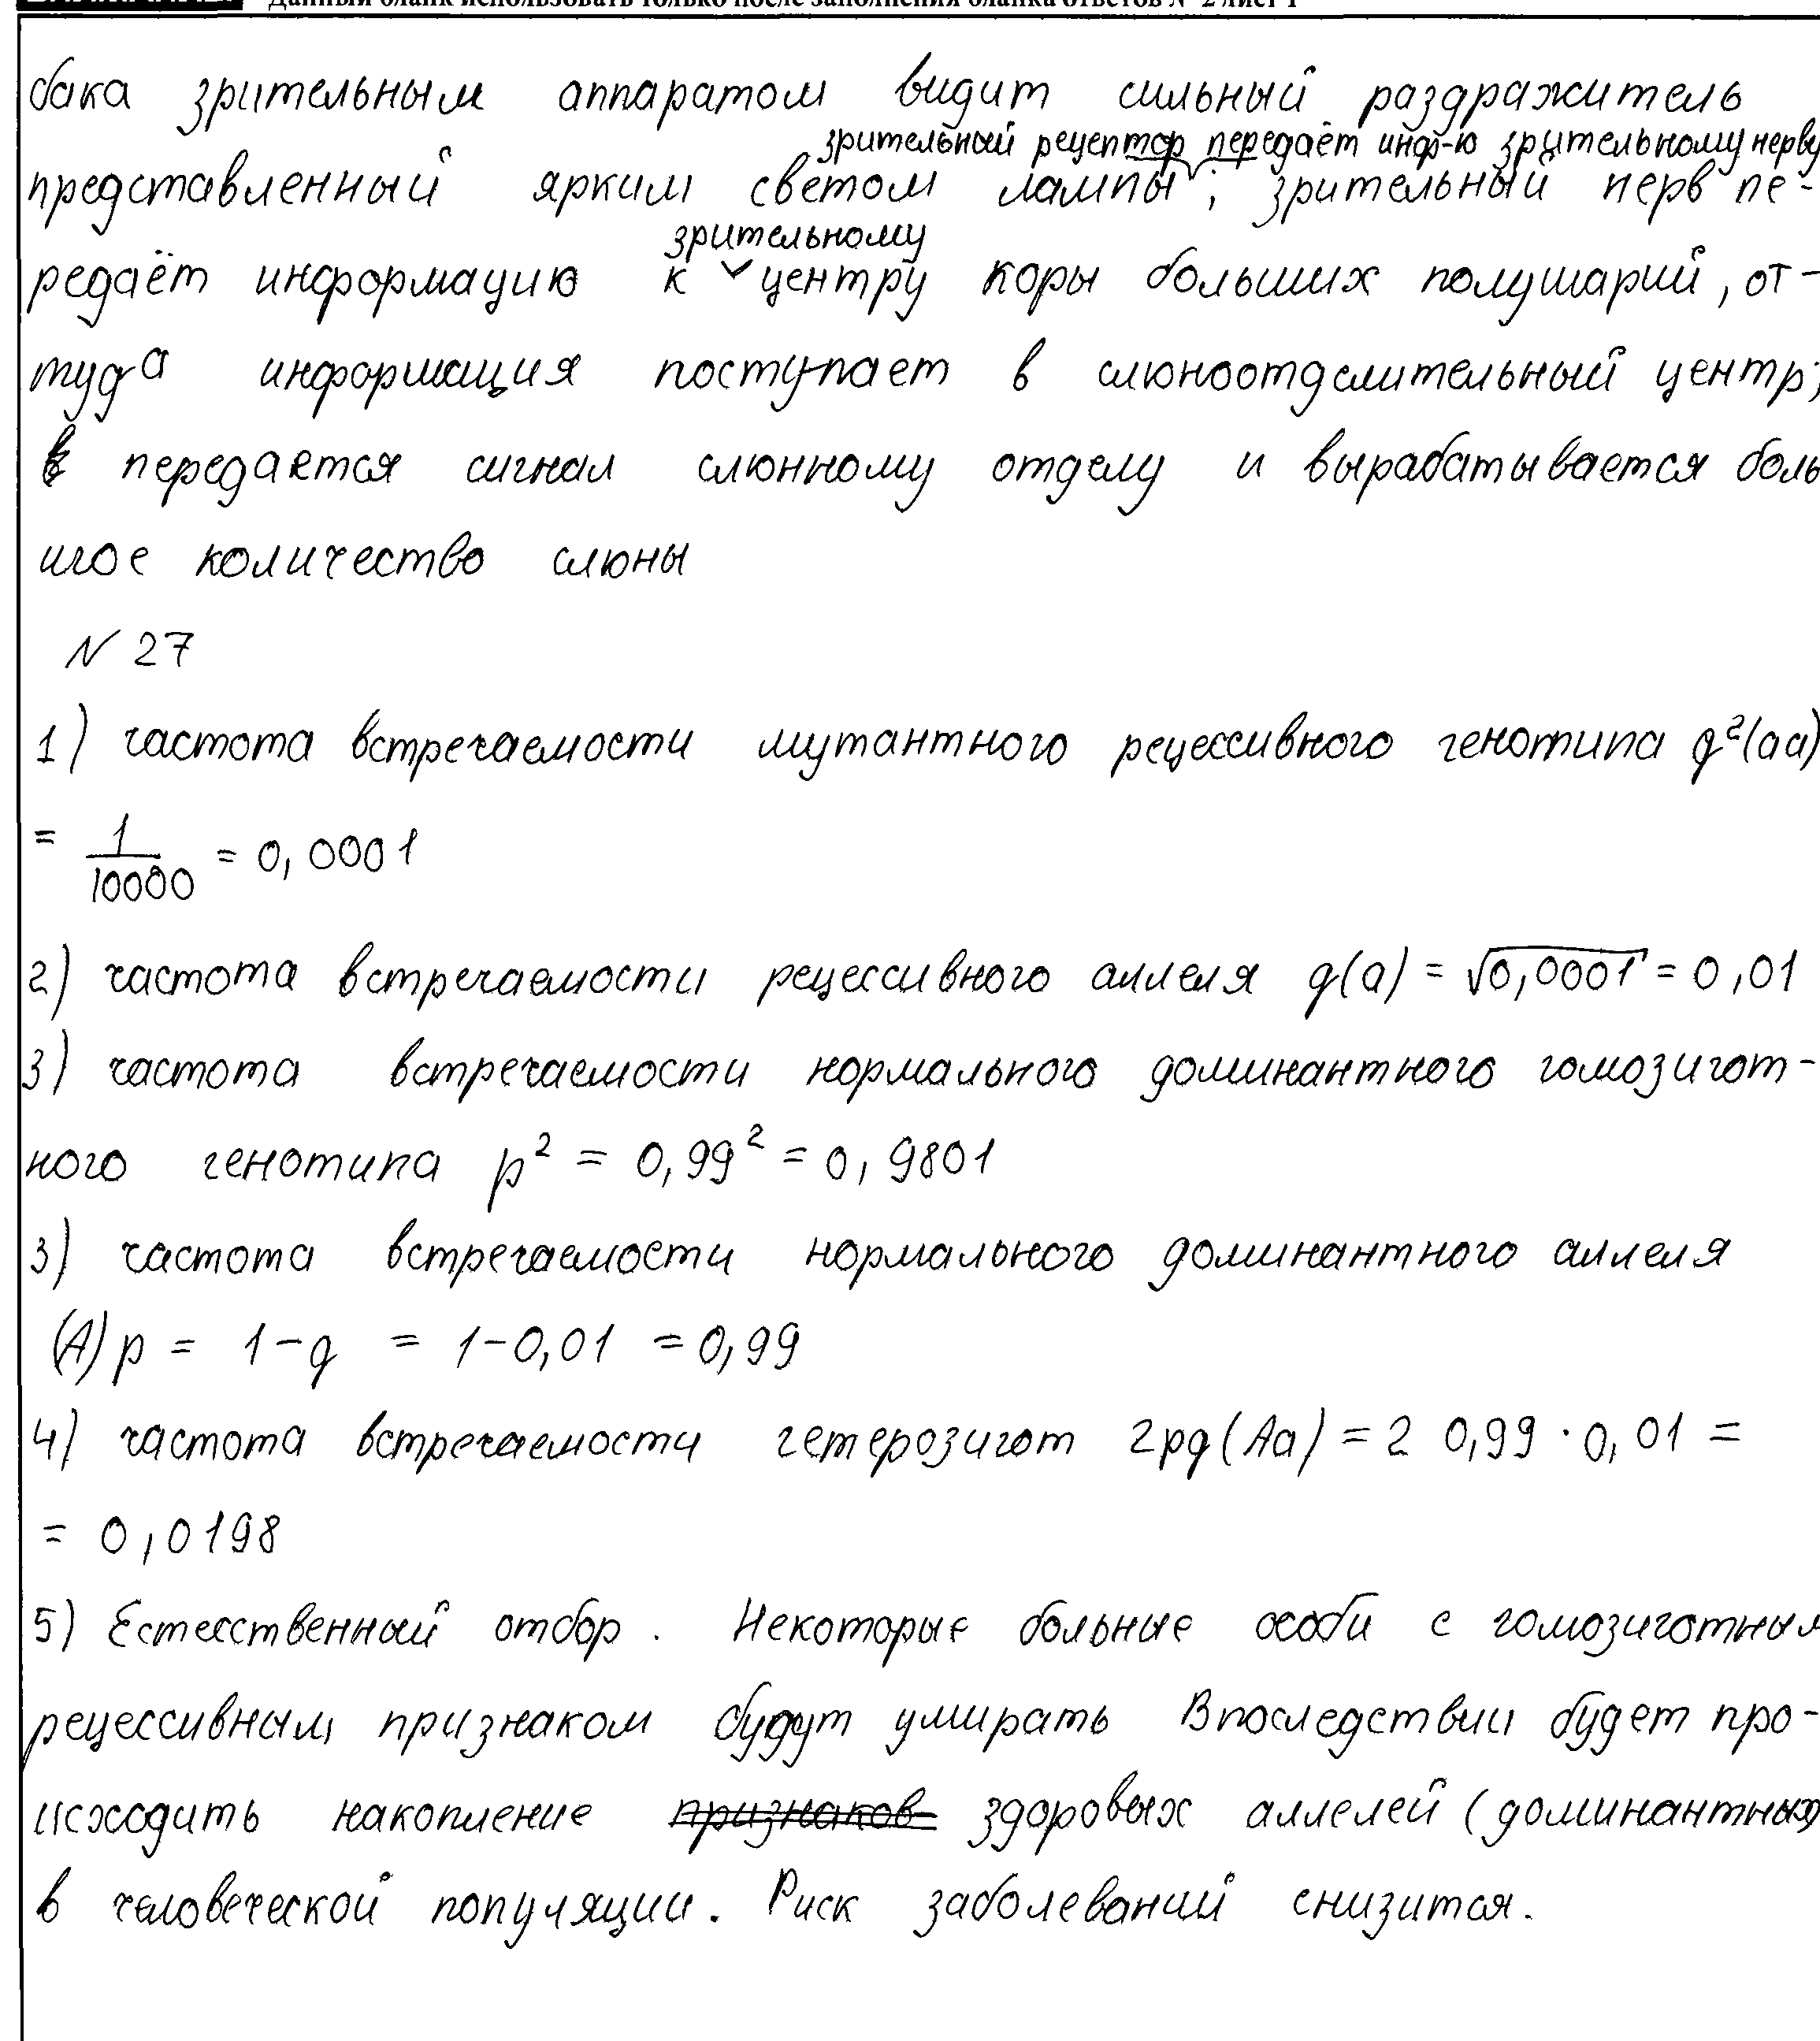 Данный бланк использовать только после заполнения бланка ответов № 2 лист 1
бака зрительным аппаратом видит сильный раздражитель
зрительный рецептор передаёт инф-ю зрительному нерву
представленный ярким светом лампы; зрительный нерв пе-
зрительному
редаёт информацию к центру коры больших полушарий, от-
туда информация поступает в слюноотделительный центр;
передается сигнал слюнному отделу и вырабатывается боль
шое количество слюны
N 27
1) частота встречаемости мутантного рецессивного генотипа q²(aa)
= 1/10000 = 0,0001
2) частота встречаемости рецессивного аллеля q(a) = √0,0001 = 0,01
3) частота встречаемости нормального доминантного гомозигот-
ного генотипа p² = 0,99² = 0,9801
3) частота встречаемости нормального доминантного аллеля
(A) p = 1-q = 1-0,01 = 0,99
4) частота встречаемости гетерозигот 2pq(Aa) = 2 0,99 · 0,01 =
= 0,0198
5) Естесственный отбор. Некоторые больные особи с гомозиготным
рецессивным признаком будут умирать Впоследствии будет про-
исходить накопление признаков здоровых аллелей (доминантных)
в человеческой популяции. Риск заболеваний снизится.